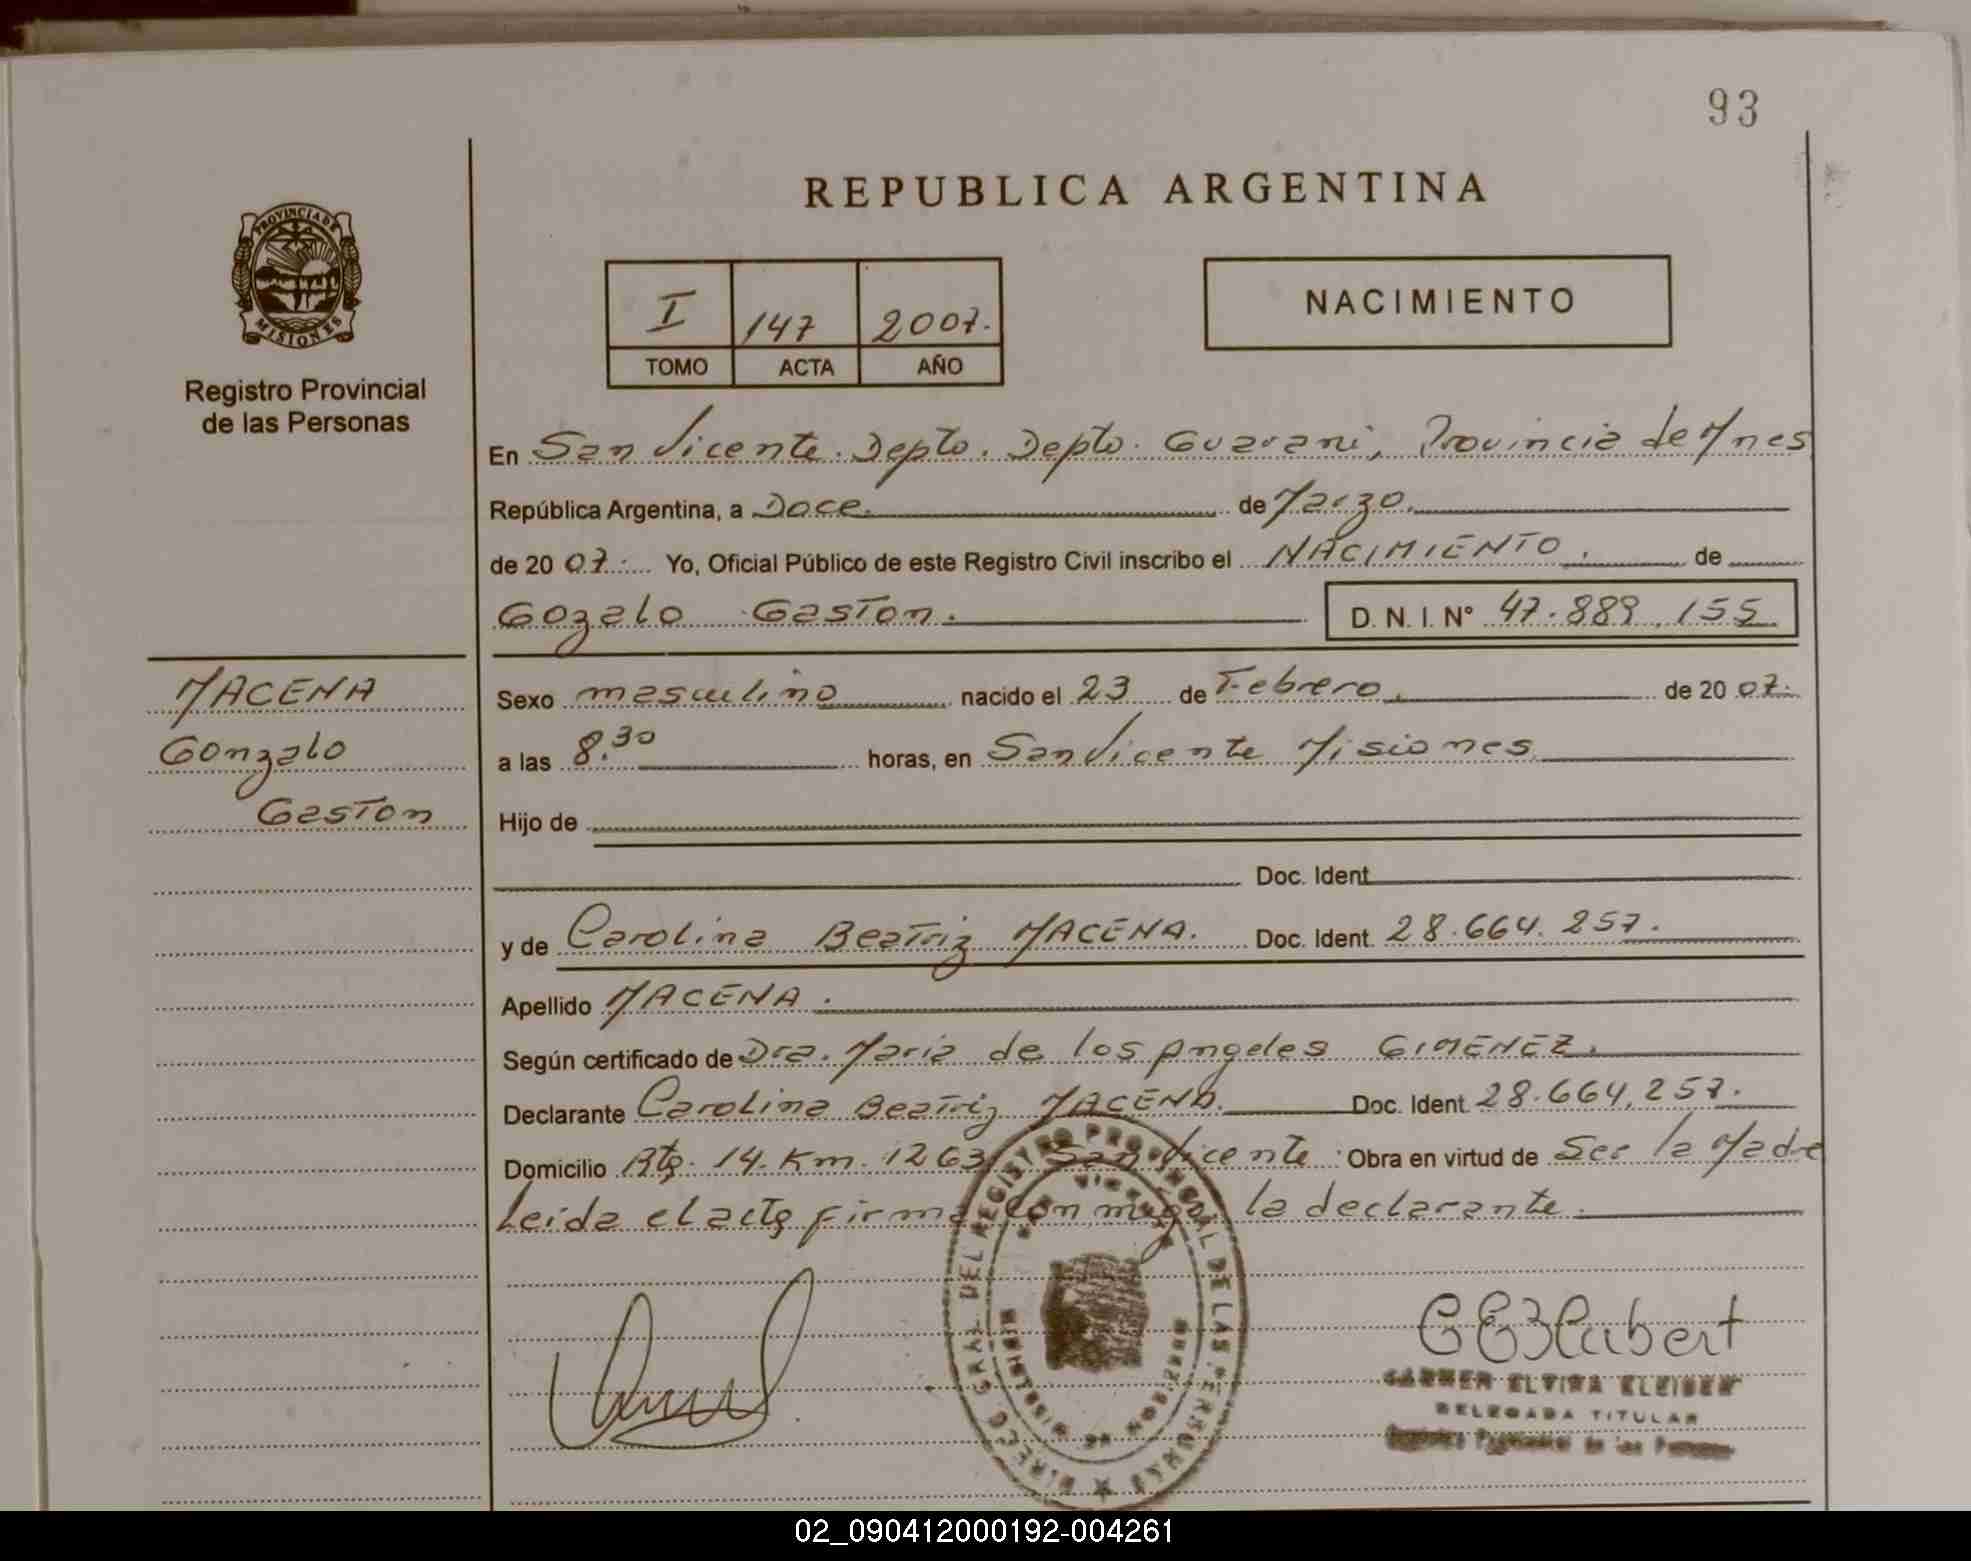 93
REPUBLICA ARGENTINA
PROVINCIA DE
MISIONES
Registro Provincial
de las Personas
I 147 2007.
TOMO ACTA AÑO
NACIMIENTO
En San Vicente. Depto. Depto. Guarani, Provincia de Mnes
República Argentina, a Doce. de Marzo.
de 20 07. Yo, Oficial Público de este Registro Civil inscribo el NACIMIENTO. de
Gozalo Gaston. D. N. I. N° 47.889.155
MACENA
Gonzalo
Gaston
Sexo masculino nacido el 23 de Febrero. de 20 07.
a las 8.30 horas, en San Vicente Misiones
Hijo de
Doc. Ident
y de Carolina Beatriz MACENA. Doc. Ident. 28.664.257.
Apellido MACENA.
Según certificado de Dra. Maria de los Angeles GIMENEZ.
Declarante Carolina Beatriz MACENA. Doc. Ident. 28.664.257.
Domicilio Rta. 14. Km. 1263 San Vicente Obra en virtud de Ser la Madre
Leida el acta firma con migo la declarante.
DIRECC. GRAL. DEL REGISTRO PROVINCIAL DE LAS PERSONAS
SAN VICENTE
MISIONES
CARMEN ELVIRA
DELEGADA TITULAR
Registro Provincial de las Personas
02_090412000192-004261